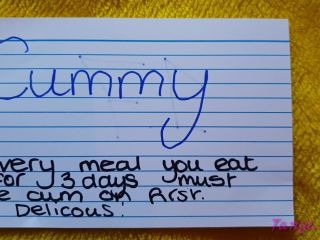 Cummy
very meal you eat
for 3 days must
e cum on first.
Delicous.